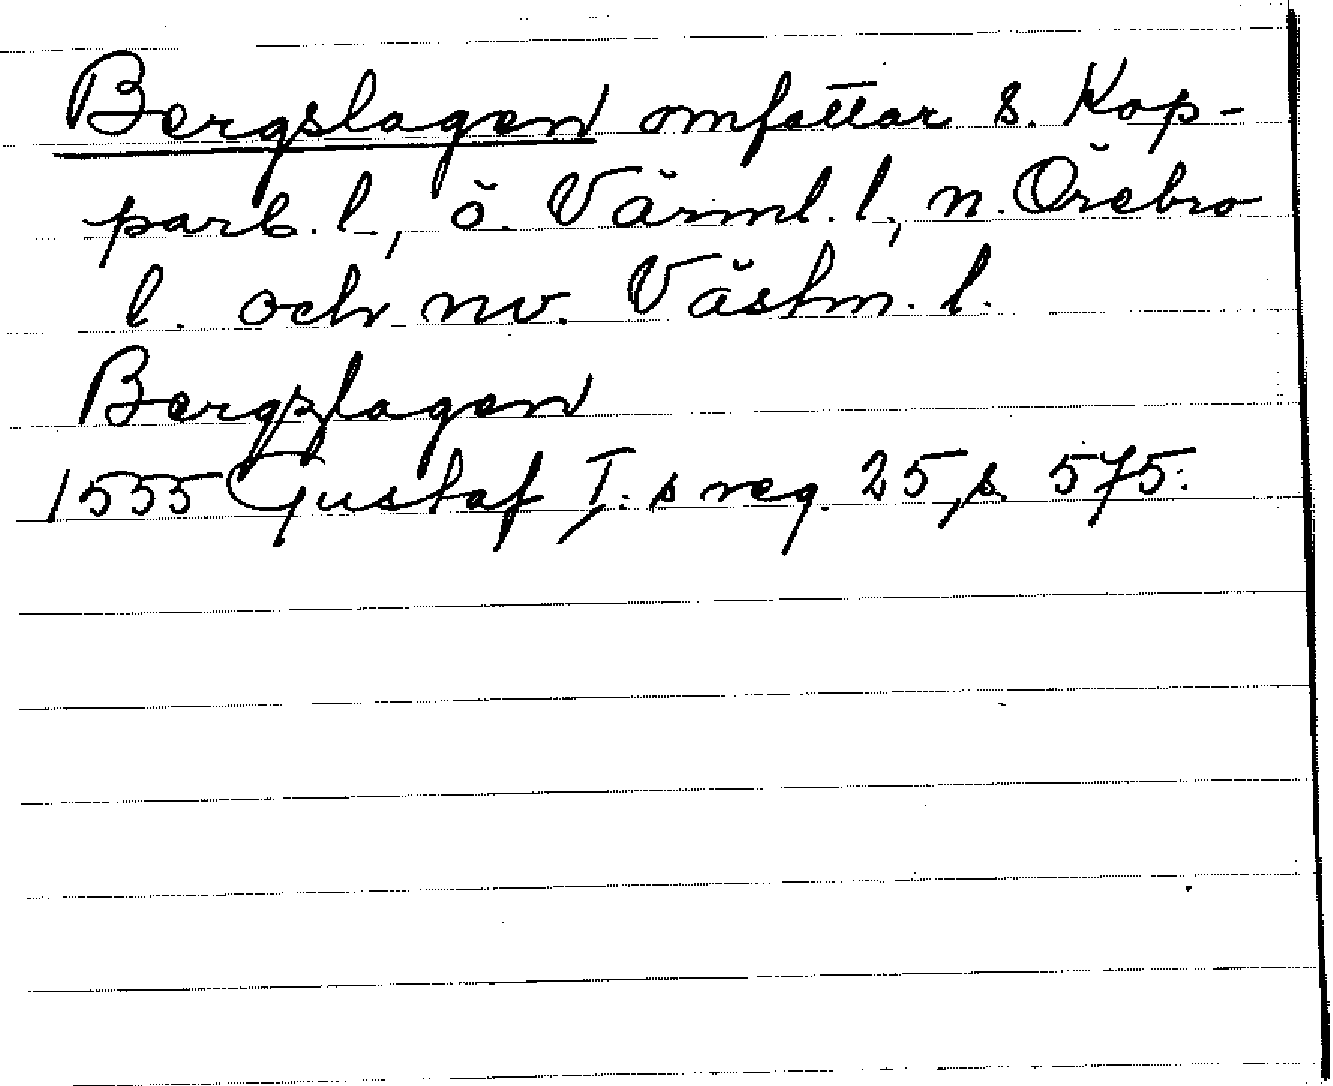 Bergslagen omfattar s. Kop-
parb. l., ö. Värml. l., n. Örebro
l. och nv. Västm. l.
Bergzlagen
1555 Gustaf I:s reg. 25, s. 575.